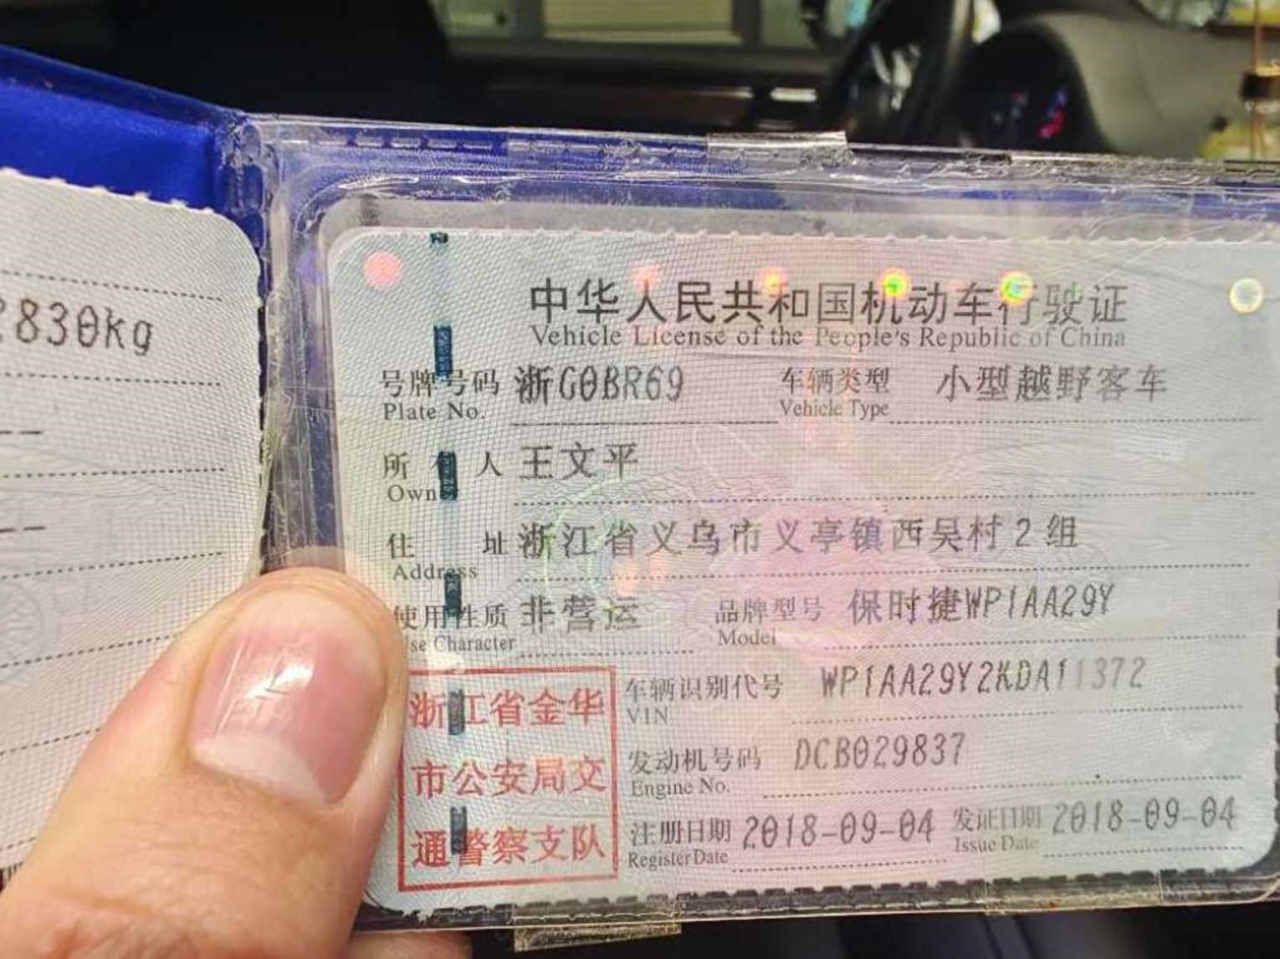 830kg
中华人民共和国机动车行驶证
Vehicle License of the People's Republic of China
号牌号码 浙G0BR69 车辆类型 小型越野客车
Plate No. Vehicle Type
所 人 王文平
Own
住 址 浙江省义乌市义亭镇西吴村2组
Address
使用性质 非营运 品牌型号 保时捷WP1AA29Y
se Character Model
浙江省金华 车辆识别代号 WP1AA29Y2KDA11372
VIN
市公安局交 发动机号码 DCB029837
Engine No.
通警察支队 注册日期 2018-09-04 发证日期 2018-09-04
Register Date Issue Date